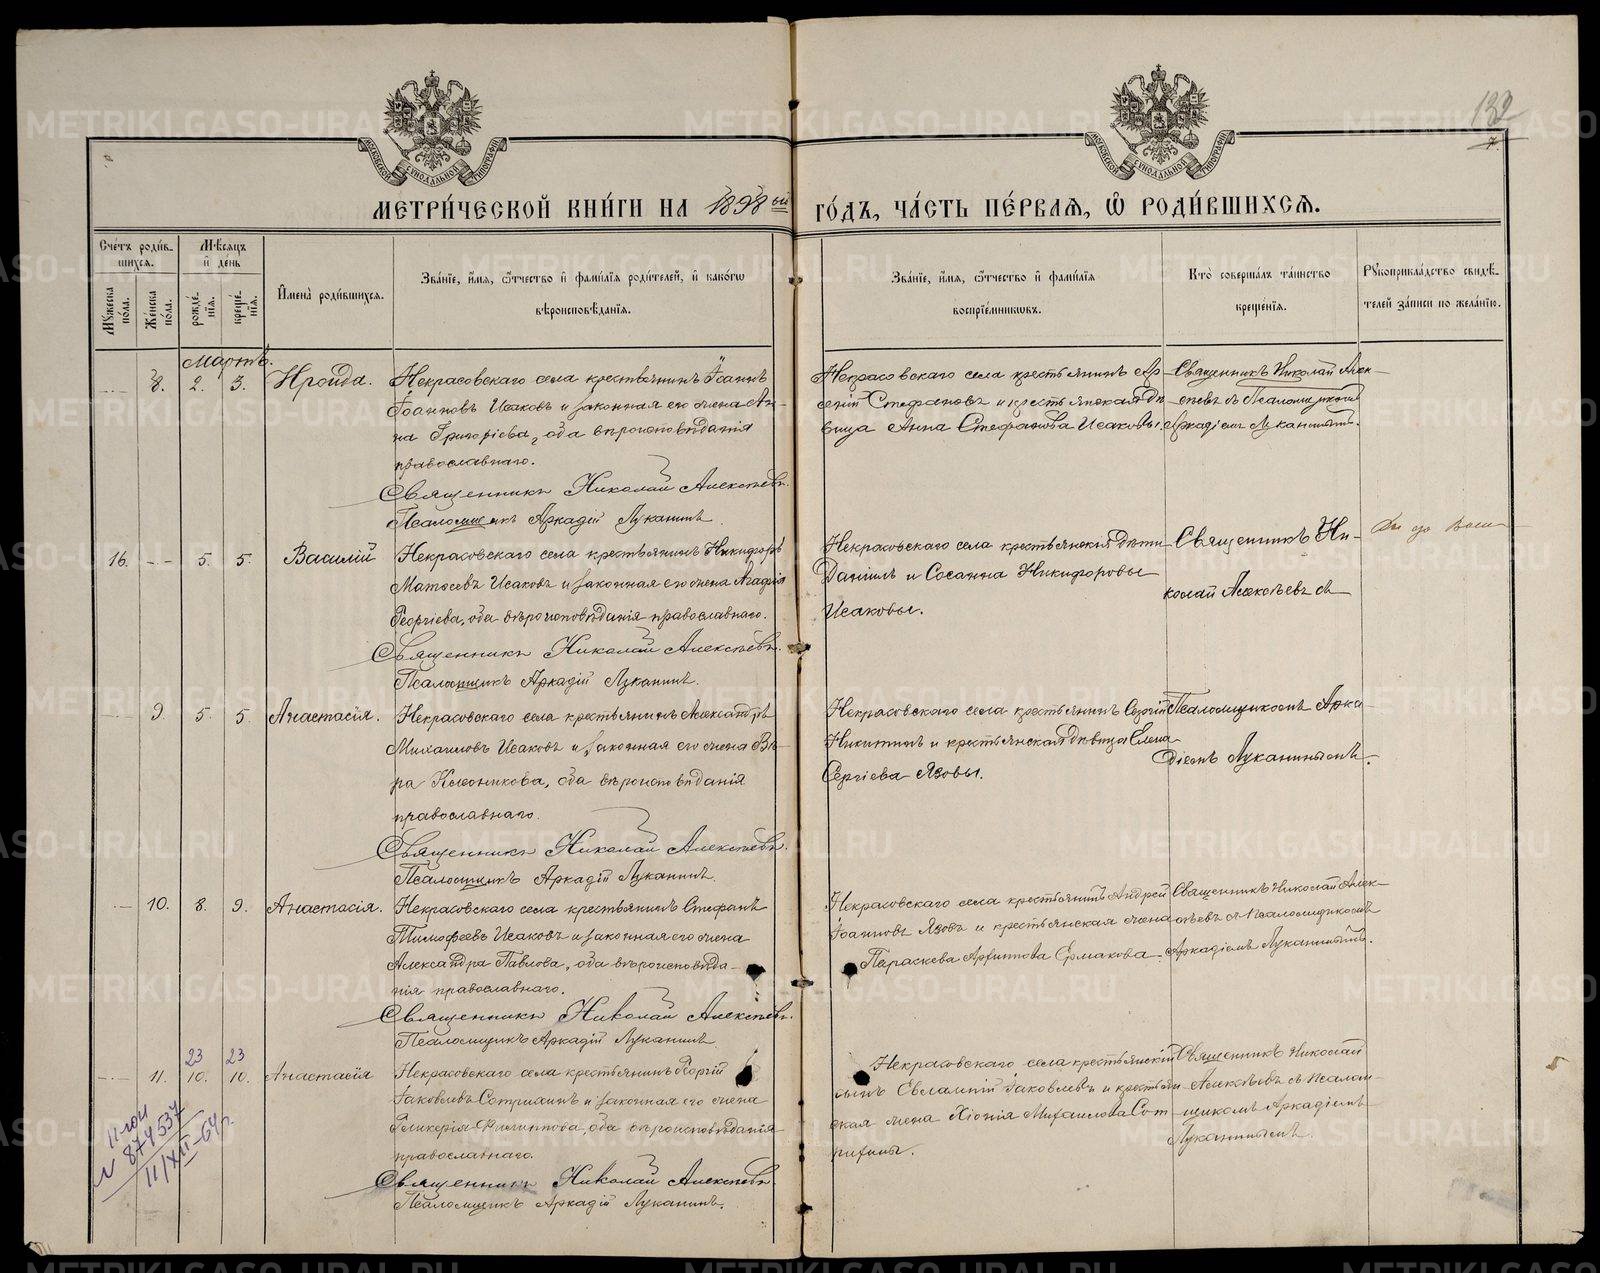 132
МЕТРИ́ЧЕСКОЙ КНИ́ГИ НА 1898ый
ГО́ДЪ, ЧА́СТЬ ПЕ́РВАЯ, Ѡ҆ РОДИ́ВШИХСЯ.
МОСКОВСКОЙ СУНОДАЛЬНОЙ ТИПОГРАФІИ
МОСКОВСКОЙ СУНОДАЛЬНОЙ ТИПОГРАФІИ
Сче́тъ роди́вшихся.
Му́жеска по́ла.
Же́нска по́ла.
Мѣ́сяцъ и҆ де́нь
рожде́нїя.
креще́нїя.
И҆мена̀ роди́вшихся.
Зва́нїе, и҆́мя, ѻ҆́тчество и҆ фами́лїя роди́телей, и҆ како́гѡ
вѣроисповѣ́данїя.
Зва́нїе, и҆́мя, ѻ҆́тчество и҆ фами́лїя
воспрїе́мникѡвъ.
Кто̀ соверша́лъ та́инство
креще́нїя.
Рꙋкоприкла́дство свидѣ́телей за́писи по жела́нїю.
Мартъ.
8. 2. 3. Ираида.
Некрасовскаго села крестьянинъ Іоаннъ
Іоанновъ Исаковъ и законная его жена Ан-
на Григоріева, оба вѣроисповѣданія
православнаго.
Священникъ Николай Алексѣевъ.
Псаломщикъ Аркадій Луканинъ.
Некрасовскаго села крестьянинъ Ар
сеній Стефановъ и крестьянская дѣ
вица Анна Стефанова Исаковы.
Священникъ Николай Алек-
сѣевъ съ Псаломщикомъ
Аркадіемъ Луканинымъ.
16. 5. 5. Василій
Некрасовскаго села крестьянинъ Никифоръ
Матѳеевъ Исаковъ и законная его жена Агафія
Георгіева, оба вѣроисповѣданія православнаго.
Священникъ Николай Алексѣевъ.
Псаломщикъ Аркадій Луканинъ.
Некрасовскаго села крестьянскія дѣти
Даніилъ и Сосанна Никифоровы
Исаковы.
Священникъ Ни-
колай Алексѣевъ съ
9. 5. 5. Анастасія.
Некрасовскаго села крестьянинъ Александръ
Михаиловъ Исаковъ и законная его жена Вѣ-
ра Колесникова, оба вѣроисповѣданія
православнаго.
Священникъ Николай Алексѣевъ.
Псаломщикъ Аркадій Луканинъ.
Некрасовскаго села крестьянинъ Сергій
Никитинъ и крестьянская дѣвица Елена
Сергіева Язовы.
Псаломщикомъ Арка-
діемъ Луканинымъ.
10. 8. 9. Анастасія.
Некрасовскаго села крестьянинъ Стефанъ
Тимофеевъ Исаковъ и законная его жена
Александра Павлова, оба вѣроисповѣда-
нія православнаго.
Священникъ Николай Алексѣевъ.
Псаломщикъ Аркадій Луканинъ
Некрасовскаго села крестьянинъ Андрей
Іоанновъ Язовъ и крестьянская жена
Параскева Архиппова Ермакова.
Священникъ Николай Алек-
сѣевъ съ Псаломщикомъ
Аркадіемъ Луканинымъ.
23 23
11. 10. 10. Анастасія
Некрасовскаго села крестьянинъ Георгій
Іаковлевъ Сотринъ и законная его жена
Гликерія Филиппова, оба вѣроисповѣданія
православнаго.
Священникъ Николай Алексѣевъ
Псаломщикъ Аркадій Луканинъ.
Некрасовскаго села крестьянскій
сынъ Евлампій Іаковлевъ и крестьян-
ская жена Хіонія Михаилова Сот-
рины.
Священникъ Николай
Алексѣевъ съ Псалом-
щикомъ Аркадіемъ
Луканинымъ.
№ 874537
11/XII-64 г.